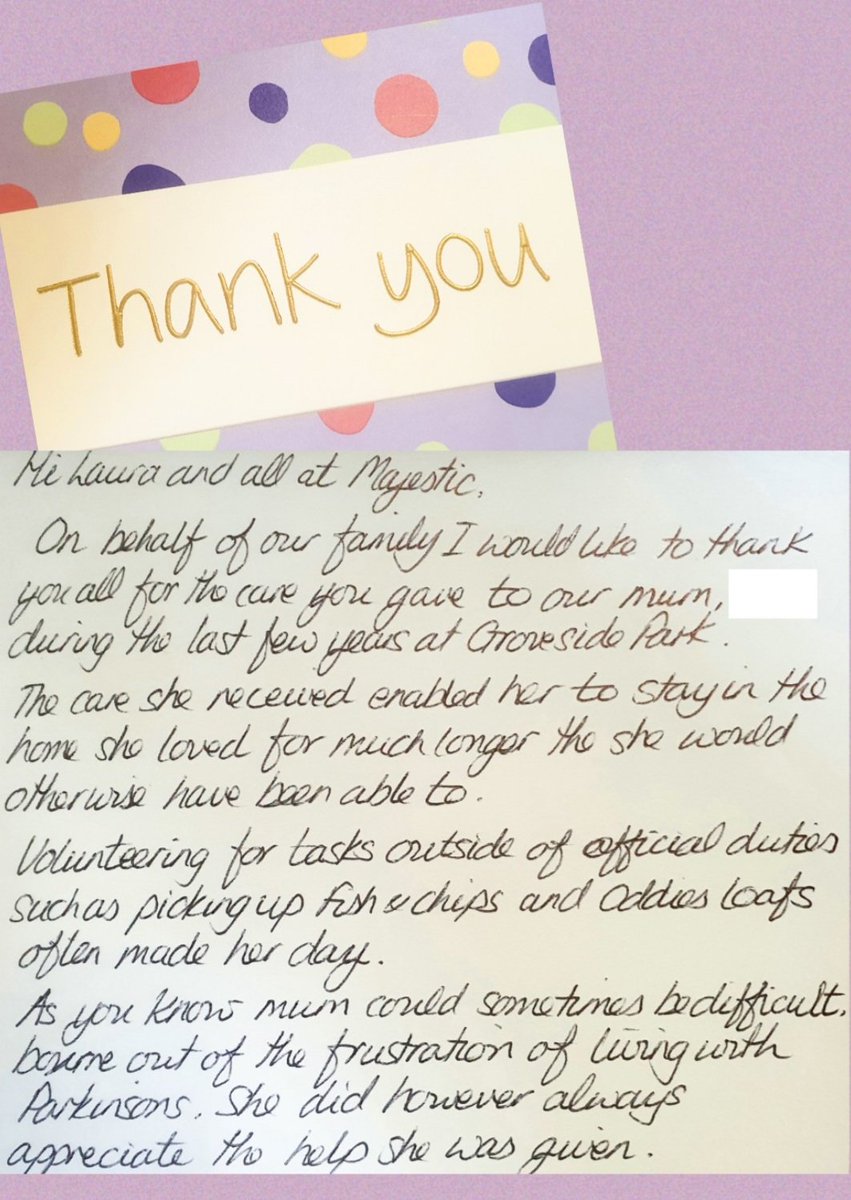 Thank you
Hi Laura and all at Majestic,
On behalf of our family I would like to thank
you all for the care you gave to our mum,
during the last few years at Groveside Park.
The care she received enabled her to stay in the
home she loved for much longer the she would
otherwise have been able to.
Volunteering for tasks outside of official duties
such as picking up fish & chips and Oddies loafs
often made her day.
As you know mum could sometimes be difficult,
bourne out of the frustration of living with
Parkinsons. She did however always
appreciate the help she was given.